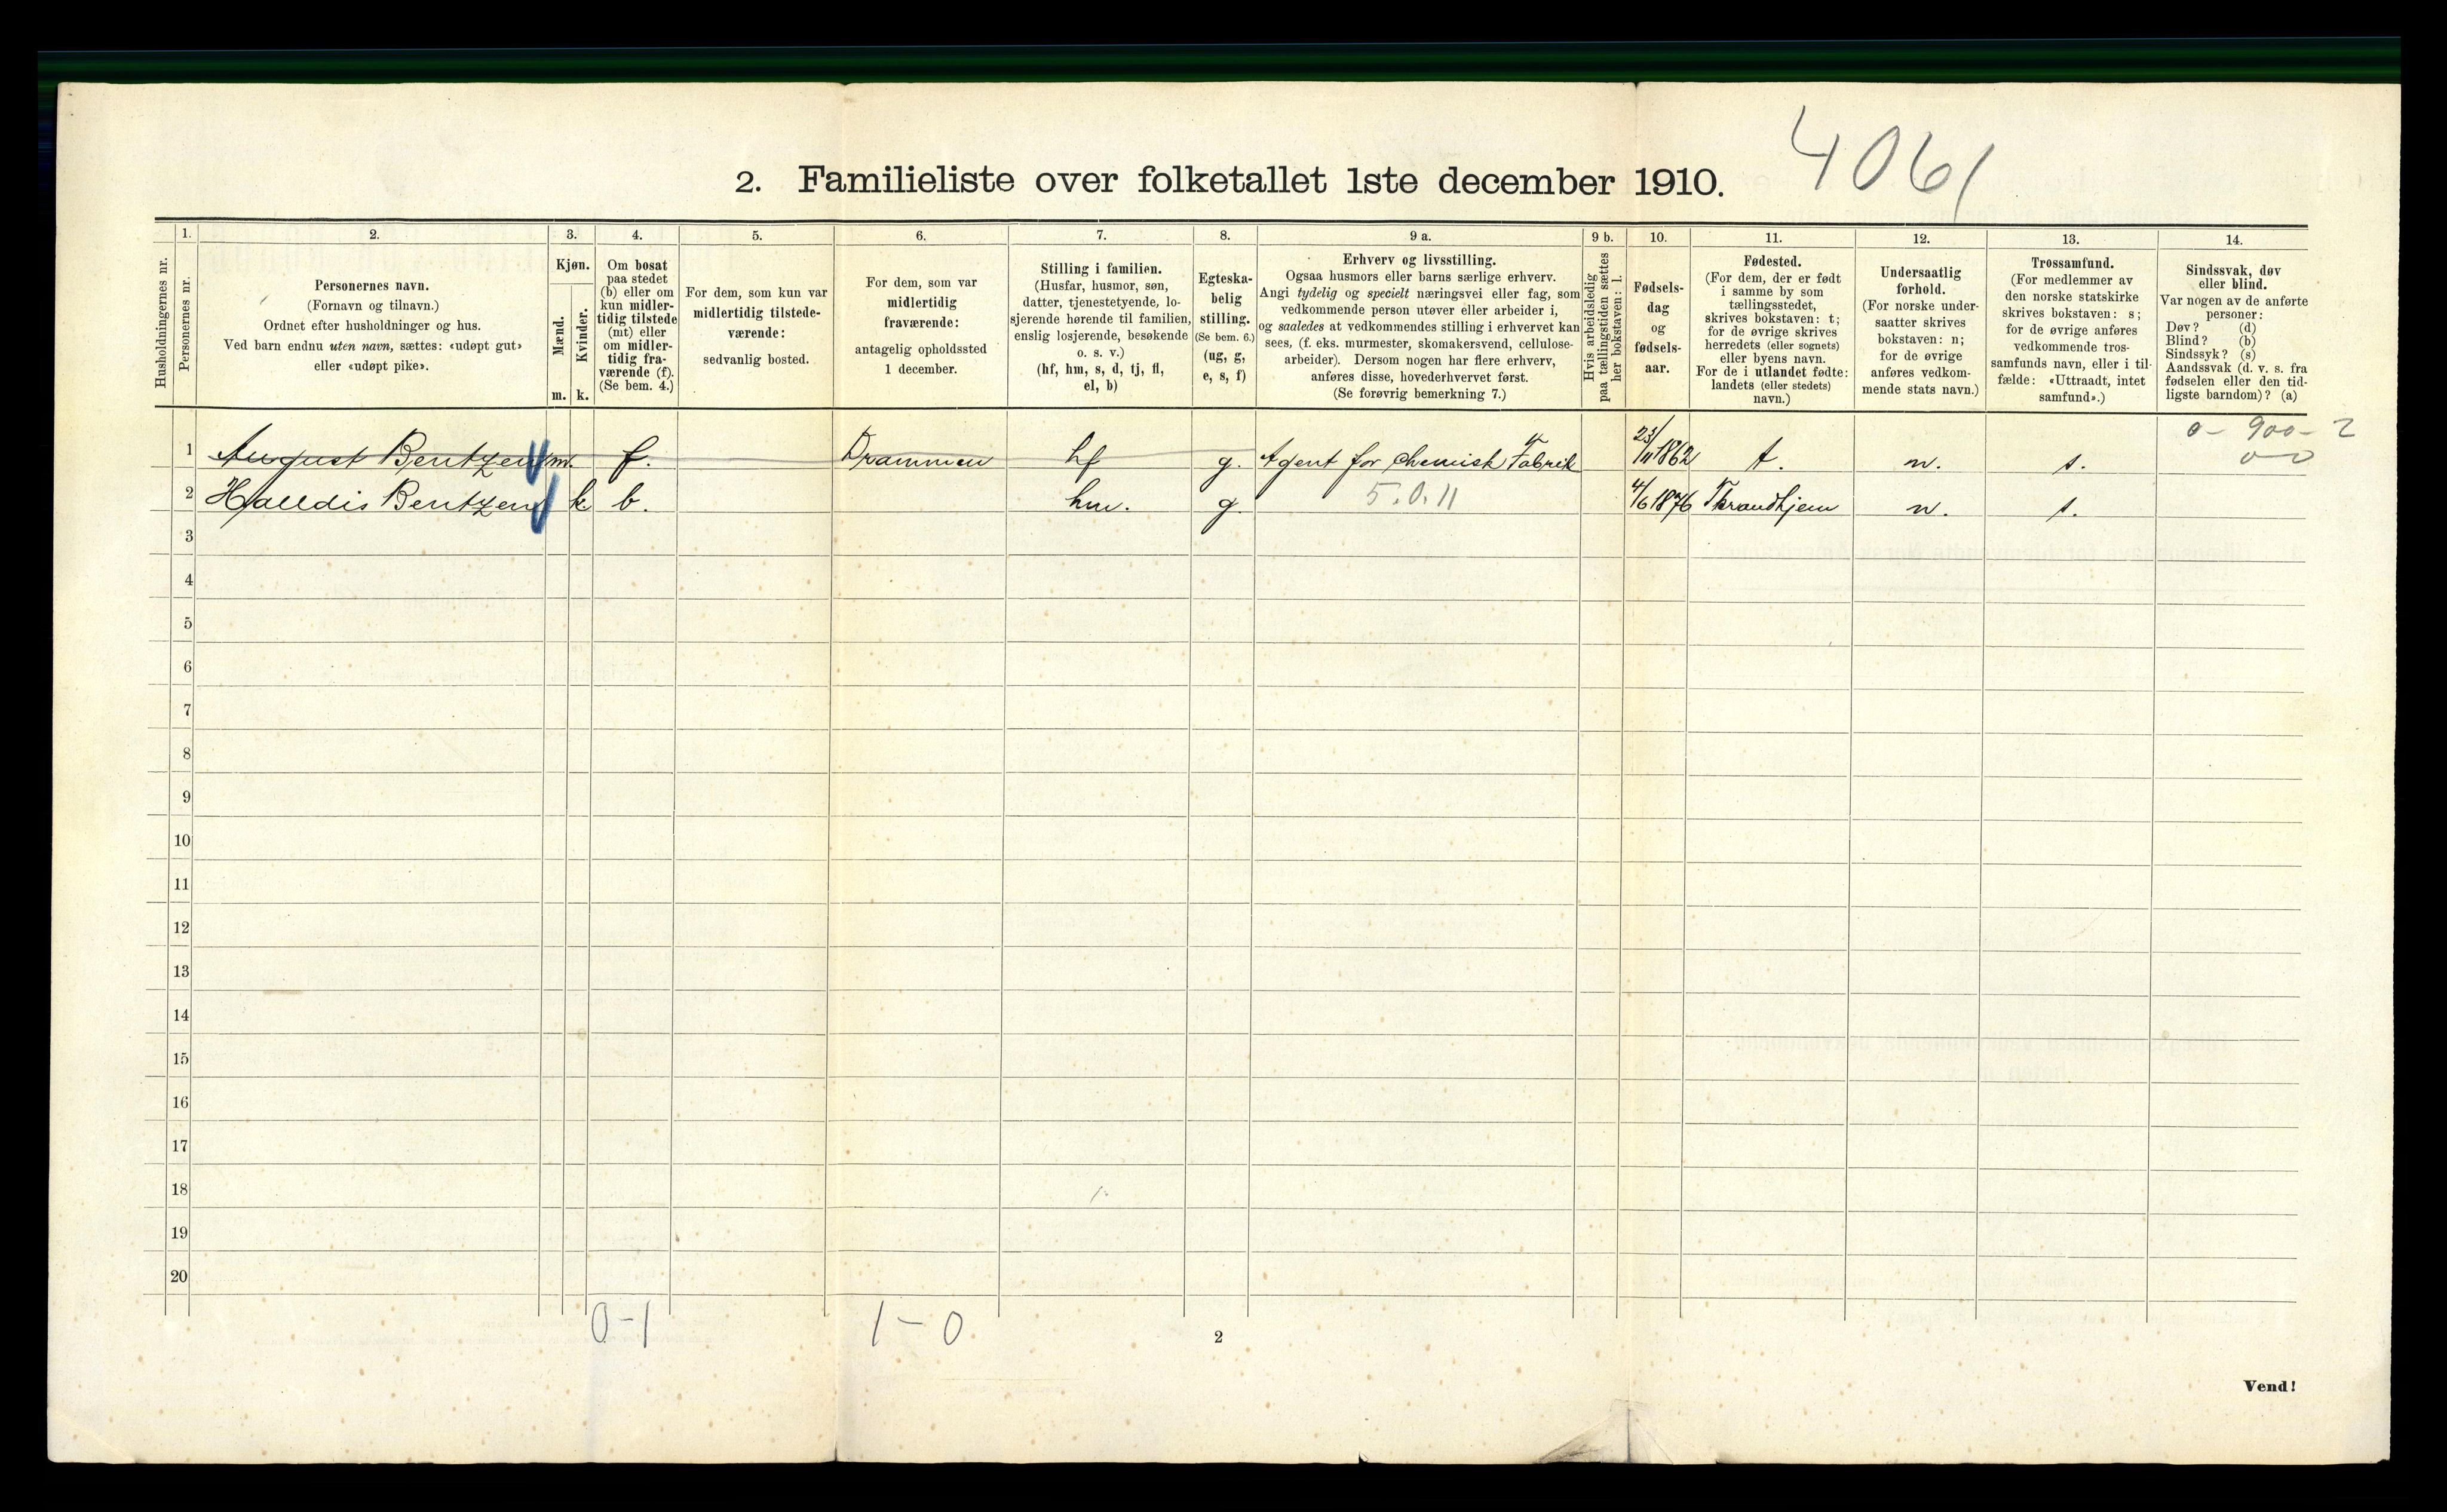 4061
2. Familieliste over folketallet 1ste december 1910.
Husholdningernes nr.
1.
Personernes nr.
2.
Personernes navn.
(Fornavn og tilnavn.)
Ordnet efter husholdninger og hus.
Ved barn endnu uten navn, sættes: «udøpt gut»
eller «udøpt pike».
3.
Kjøn.
Mænd.
Kvinder.
m. k.
4.
Om bosat
paa stedet
(b) eller om
kun midler-
tidig tilstede
(mt) eller
om midler-
tidig fra-
værende (f).
(Se bem. 4.)
5.
For dem, som kun var
midlertidig tilstede-
værende:
sedvanlig bosted.
6.
For dem, som var
midlertidig
fraværende:
antagelig opholdssted
1 december.
7.
Stilling i familien.
(Husfar, husmor, søn,
datter, tjenestetyende, lo-
sjerende hørende til familien,
enslig losjerende, besøkende
o. s. v.)
(hf, hm, s, d, tj, fl,
el, b)
8.
Egteska-
belig
stilling.
(Se bem. 6.)
(ug, g,
e, s, f)
9 a.
Erhverv og livsstilling.
Ogsaa husmors eller barns særlige erhverv.
Angi tydelig og specielt næringsvei eller fag, som
vedkommende person utøver eller arbeider i,
og saaledes at vedkommendes stilling i erhvervet kan
sees, (f. eks. murmester, skomakersvend, cellulose-
arbeider). Dersom nogen har flere erhverv,
anføres disse, hovederhvervet først.
(Se forøvrig bemerkning 7.)
9 b.
Hvis arbeidsledig
paa tællingstiden sættes
her bokstaven: l.
10.
Fødsels-
dag
og
fødsels-
aar.
11.
Fødested.
(For dem, der er født
i samme by som
tællingsstedet,
skrives bokstaven: t;
for de øvrige skrives
herredets (eller sognets)
eller byens navn.
For de i utlandet fødte:
landets (eller stedets)
navn.)
12.
Undersaatlig
forhold.
(For norske under-
saatter skrives
bokstaven: n;
for de øvrige
anføres vedkom-
mende stats navn.)
13.
Trossamfund.
(For medlemmer av
den norske statskirke
skrives bokstaven: s;
for de øvrige anføres
vedkommende tros-
samfunds navn, eller i til-
fælde: «Uttraadt, intet
samfund».)
14.
Sindssvak, døv
eller blind.
Var nogen av de anførte
personer:
Døv? (d)
Blind? (b)
Sindssyk? (s)
Aandssvak (d. v. s. fra
fødselen eller den tid-
ligste barndom)? (a)
0 - 900 - 2
0-0
1 August Bentzen m. f. Drammen hf g. Agent for chemisk Fabrik 23/11 1862 t. n. s.
2 Halldis Bentzen k. b. hm. g 5.0.11 4/6 1876 Thrandhjem n. s.
3
4
5
6
7
8
9
10
11
12
13
14
15
16
17
18
19
20
0-1 1-0
2
Vend!